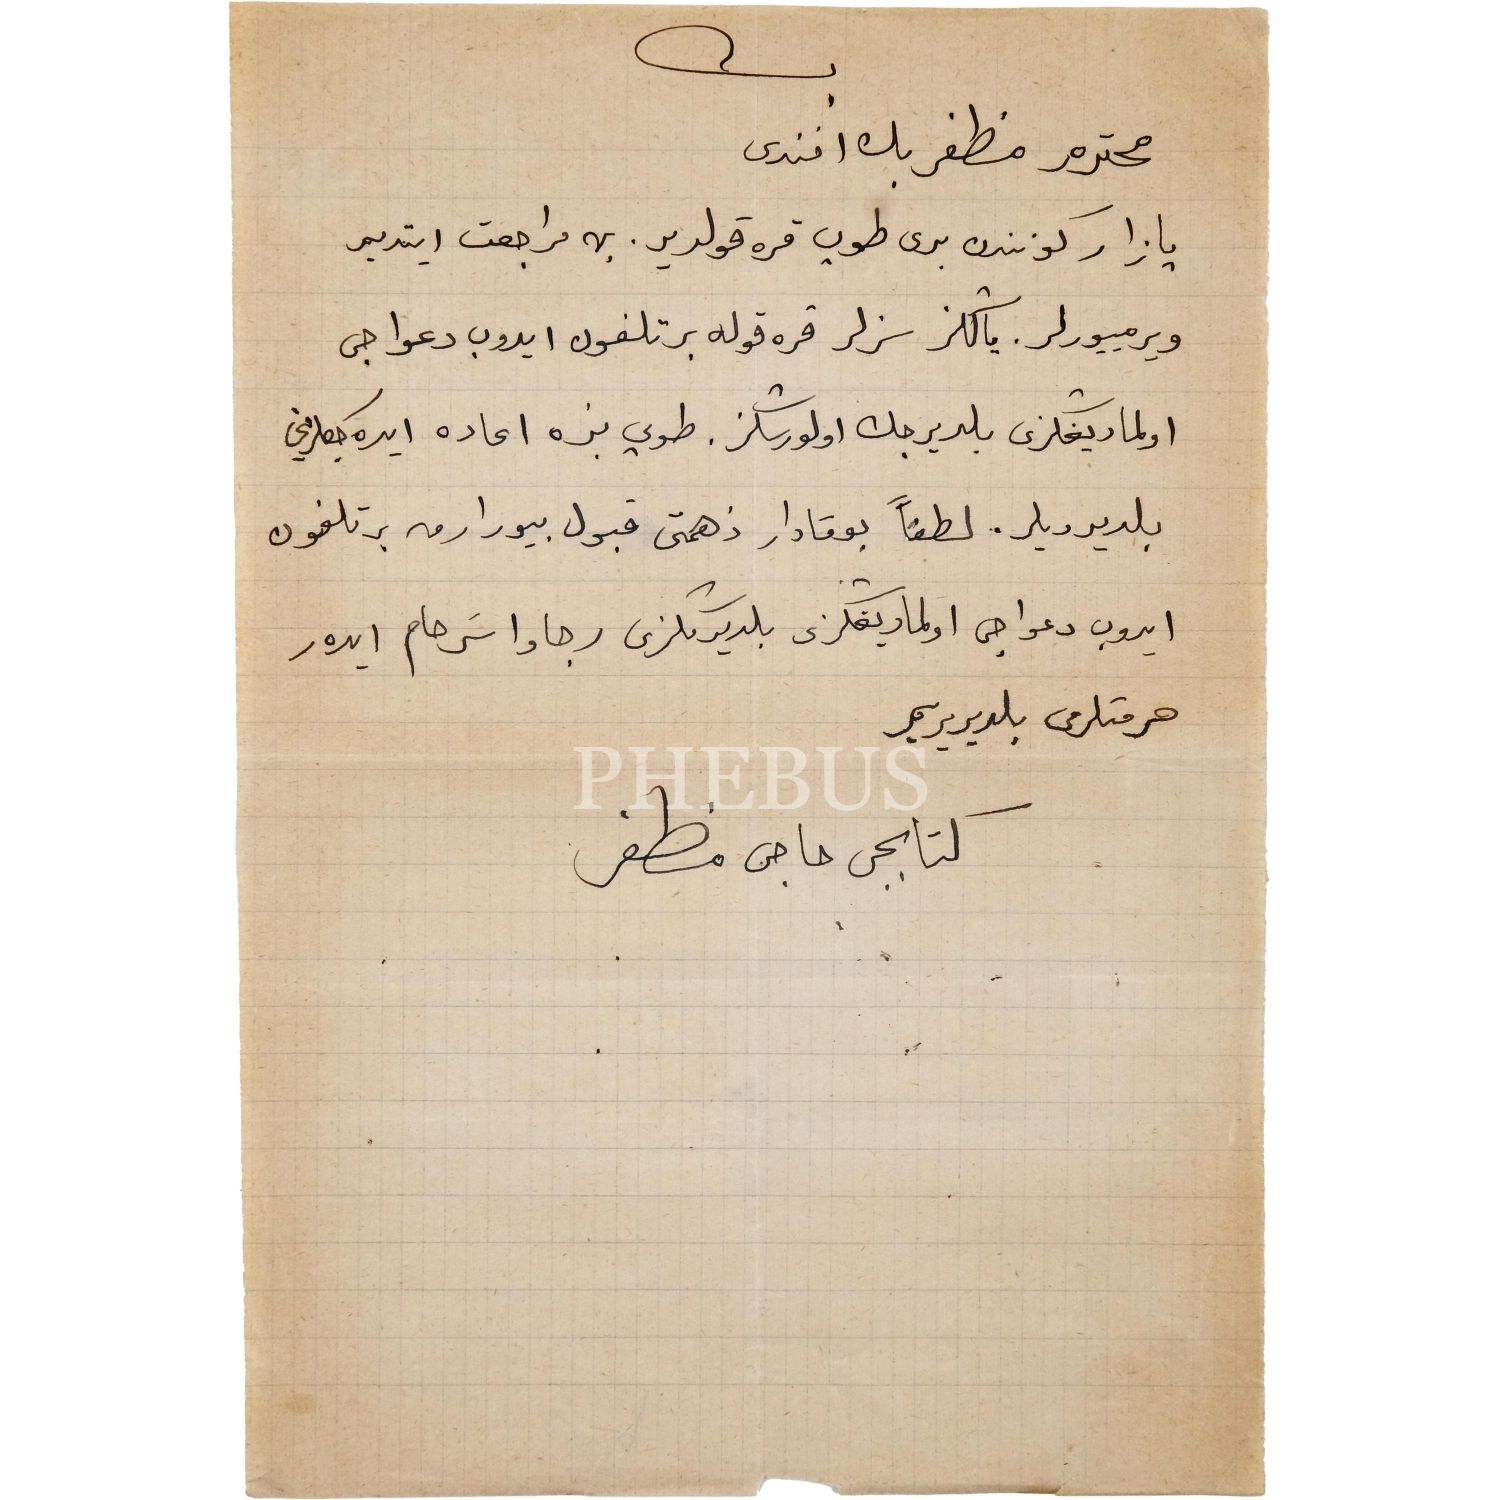 محترم مظفر بك افندی
پازار كونندن بری طوپ قره قولدير. به مراجعت ايتديم
ويرميورلر. ياڭلز سزلر قره قوله بر تلفون ايدوب دعواجی
اولماديغڭزی بلديرجك اولورسڭز. طوپی بزه اعاده ايده جكلرينی
بلديرديلر. لطفاً بوقادار ذهمتی قبول بيورارق بر تلفون
ايدوب دعواجی اولماديغڭزی بلديرمڭزی رجا و استرحام ايدر
حرمتلرمی بلديريريم
PHEBUS
كتابجی حاجی مظفر